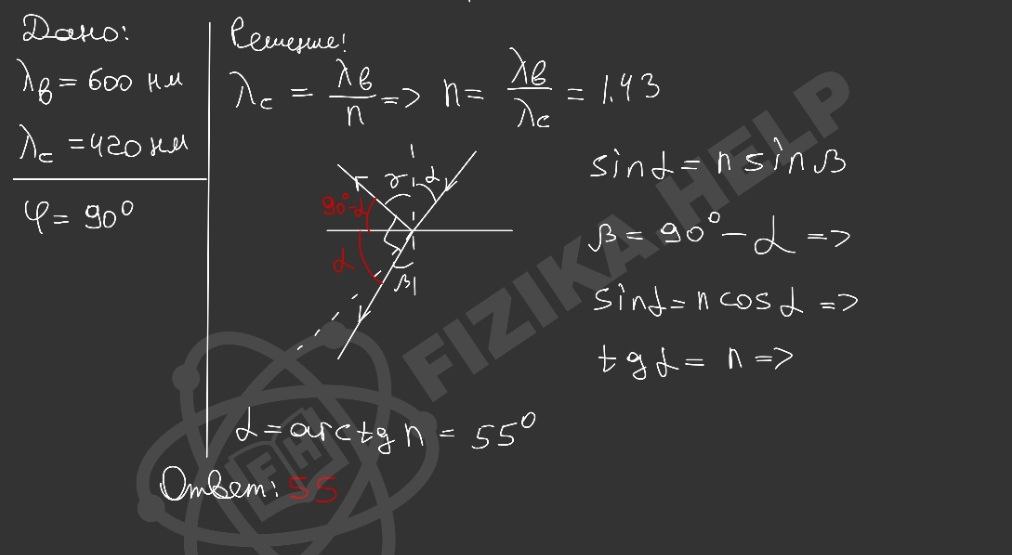 Дано:
λв = 600 нм
λс = 420 нм
φ = 90°
Решение!
λс = λв/n => n = λв/λс = 1.43
γ α
90°-α
α
β
sinα = n sinβ
β = 90° - α =>
sinα = n cosα =>
tgα = n =>
α = arctg n = 55°
Ответ: 55
FIZIKA.HELP
FH